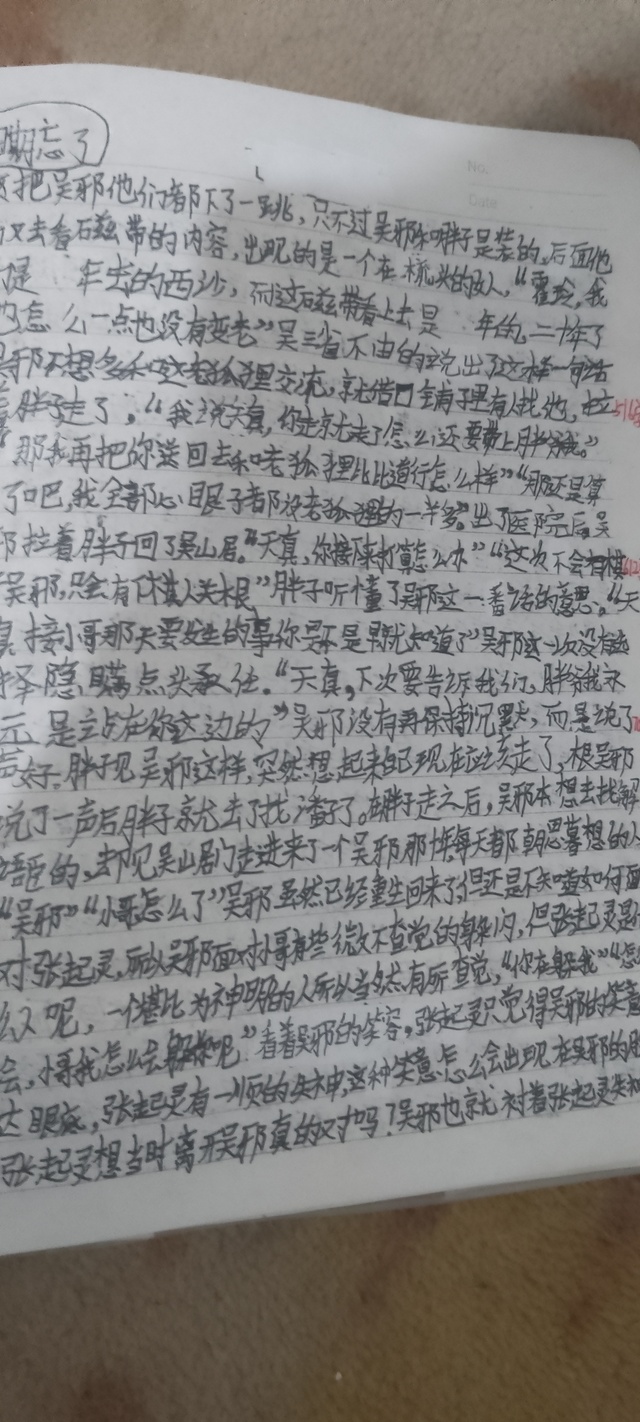 期忘了
No.
Date
把吴邪他们都下了一跳，只不过吴邪和胖子是装的，后面他
又去看磁带的内容，出现的是一个在梳头的女人，“霍玲，我
是 年去的西沙，而这磁带看上去是 年的，二十年了
怎么一点也没有变老”吴三省不由的说出了这样一句话
吴邪不想多和这老狐狸交流，就借口铺子里有人找他，拉
着胖子走了。“我说天真，你走就走了怎么还要带上胖爷我。”
“那我再把你送回去和老狐狸比比道行怎么样”“那还是算
了吧，我全部心眼子都没老狐狸的一半多。”出了医院后，吴
邪拉着胖子回了吴山居。“天真，你接下来打算怎么办”“这次不会有
吴邪，只会有 人关根”胖子听懂了吴邪这一番话的意思。“天
真接小哥那天要发生的事你是不是早就知道了”吴邪这一次没有选
择隐瞒点头承任。“天真，下次要告诉我们，胖爷我永
远是站在你这边的”吴邪没有再保持沉默，而是说了
声好。胖子见吴邪这样，突然想起来自己现在应该走了，根吴邪
说了一声后胖子就去了找潘子了。在胖子走之后，吴邪本想去找解
语臣的，却见吴山居门走进来了一个吴邪那样每天都朝思暮想的人
“吴邪”“小哥怎么了”吴邪虽然已经重生回来了，但还是不知道如何面
对张起灵，所以吴邪面对小哥有些微不查觉的躲闪，但张起灵是
么人呢，一个堪比为神明的人所以当然有所查觉，“你在躲我”“怎
会，小哥我怎么会躲你呢”看着吴邪的笑容，张起灵只觉得吴邪的笑意
达眼底，张起灵有一瞬的失神，这种笑意怎么会出现在吴邪的
张起灵想当时离开吴邪真的对吗？吴邪也就对着张起灵失